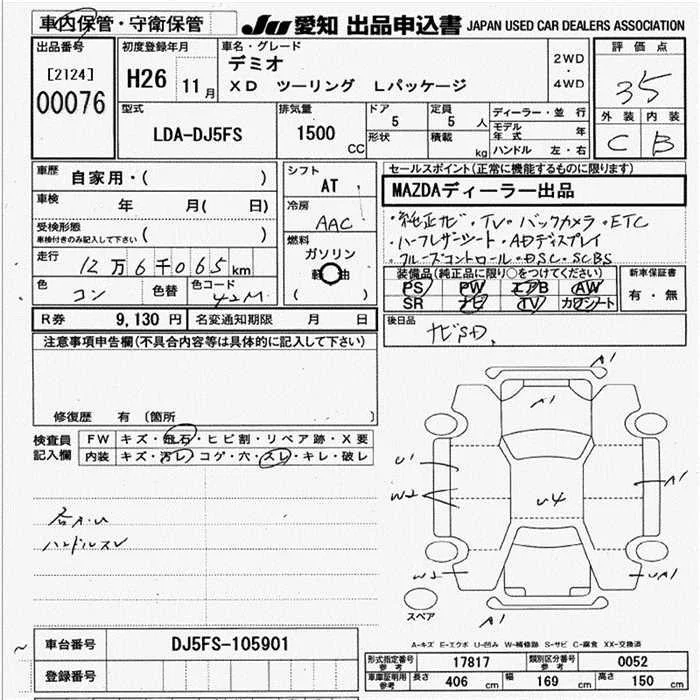 車内保管・守衛保管 JU 愛知 出品申込書 JAPAN USED CAR DEALERS ASSOCIATION
出品番号
[2124]
00076
初度登録年月
H26 11月
車名・グレード
デミオ
XD ツーリング Lパッケージ
2WD
・
4WD
評価点
35
外装 内装
C B
型式
LDA-DJ5FS
排気量
1500
CC
ドア
5
定員
5人
形状
積載
kg
ディーラー・並行
モデル年式 年
ハンドル 左・右
車歴
自家用・( )
車検
年 月( 日)
受検形態
車検付きのみ記入して下さい
( )
走行
12万6千065km
色
コン
色替
色コード
42M
シフト
AT
冷房
AAC
燃料
ガソリン
軽油
( )
セールスポイント(正常に機能するものに限ります)
MAZDAディーラー出品
・純正ナビ・TV・バックカメラ・ETC
・ハーフレザーシート・ADディスプレイ
・クルーズコントロール・DSC・SCBS
装備品(純正品に限り○をつけてください)
PS PW エアB AW
SR ナビ TV カワシート
新車保証書
有・無
後日品
ナビSD,
R券 9,130円 名変通知期限 月 日
注意事項申告欄(不具合内容等は具体的に記入して下さい)
修復歴 有 〔箇所 〕
検査員
記入欄
FW キズ・飛石・ヒビ割・リペア跡・X要
内装 キズ・汚レ・コゲ・穴・スレ・キレ・破レ
ハンドルスレ
A1
A1
U1
W2
U4
A1
W2
UA1
A1
スペア
A-キズ E-エクボ U-凹み W-補修跡 S-サビ C-腐食 XX-交換済
車台番号 DJ5FS-105901
登録番号
形式指定番号
参考
17817
類別区分番号
参考
0052
車庫証明用
参考
長さ 406 cm 幅 169 cm 高さ 150 cm